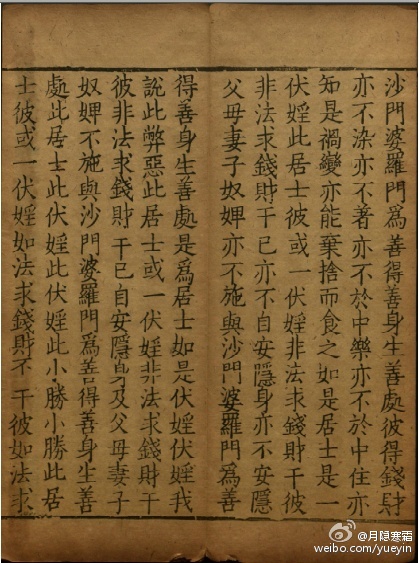 沙門婆羅門爲善得善身生善處彼得錢財
亦不染亦不著亦不於中樂亦不於中住亦
知是禍變亦能棄捨而食之如是居士是一
伏婬此居士彼或一伏婬非法求錢財干彼
非法求錢財干已亦不自安隱身亦不安隱
父母妻子奴婢亦不施與沙門婆羅門爲善
得善身生善處是爲居士如是伏婬伏婬我
說此弊惡此居士或一伏婬非法求錢財干
彼非法求錢財干已自安隱身及父母妻子
奴婢不施與沙門婆羅門爲善得善身生善
處此居士此伏婬此伏婬此小勝小勝此居
士彼或一伏婬如法求錢財不干彼如法求
@月隐寒霜
weibo.com/yueyin